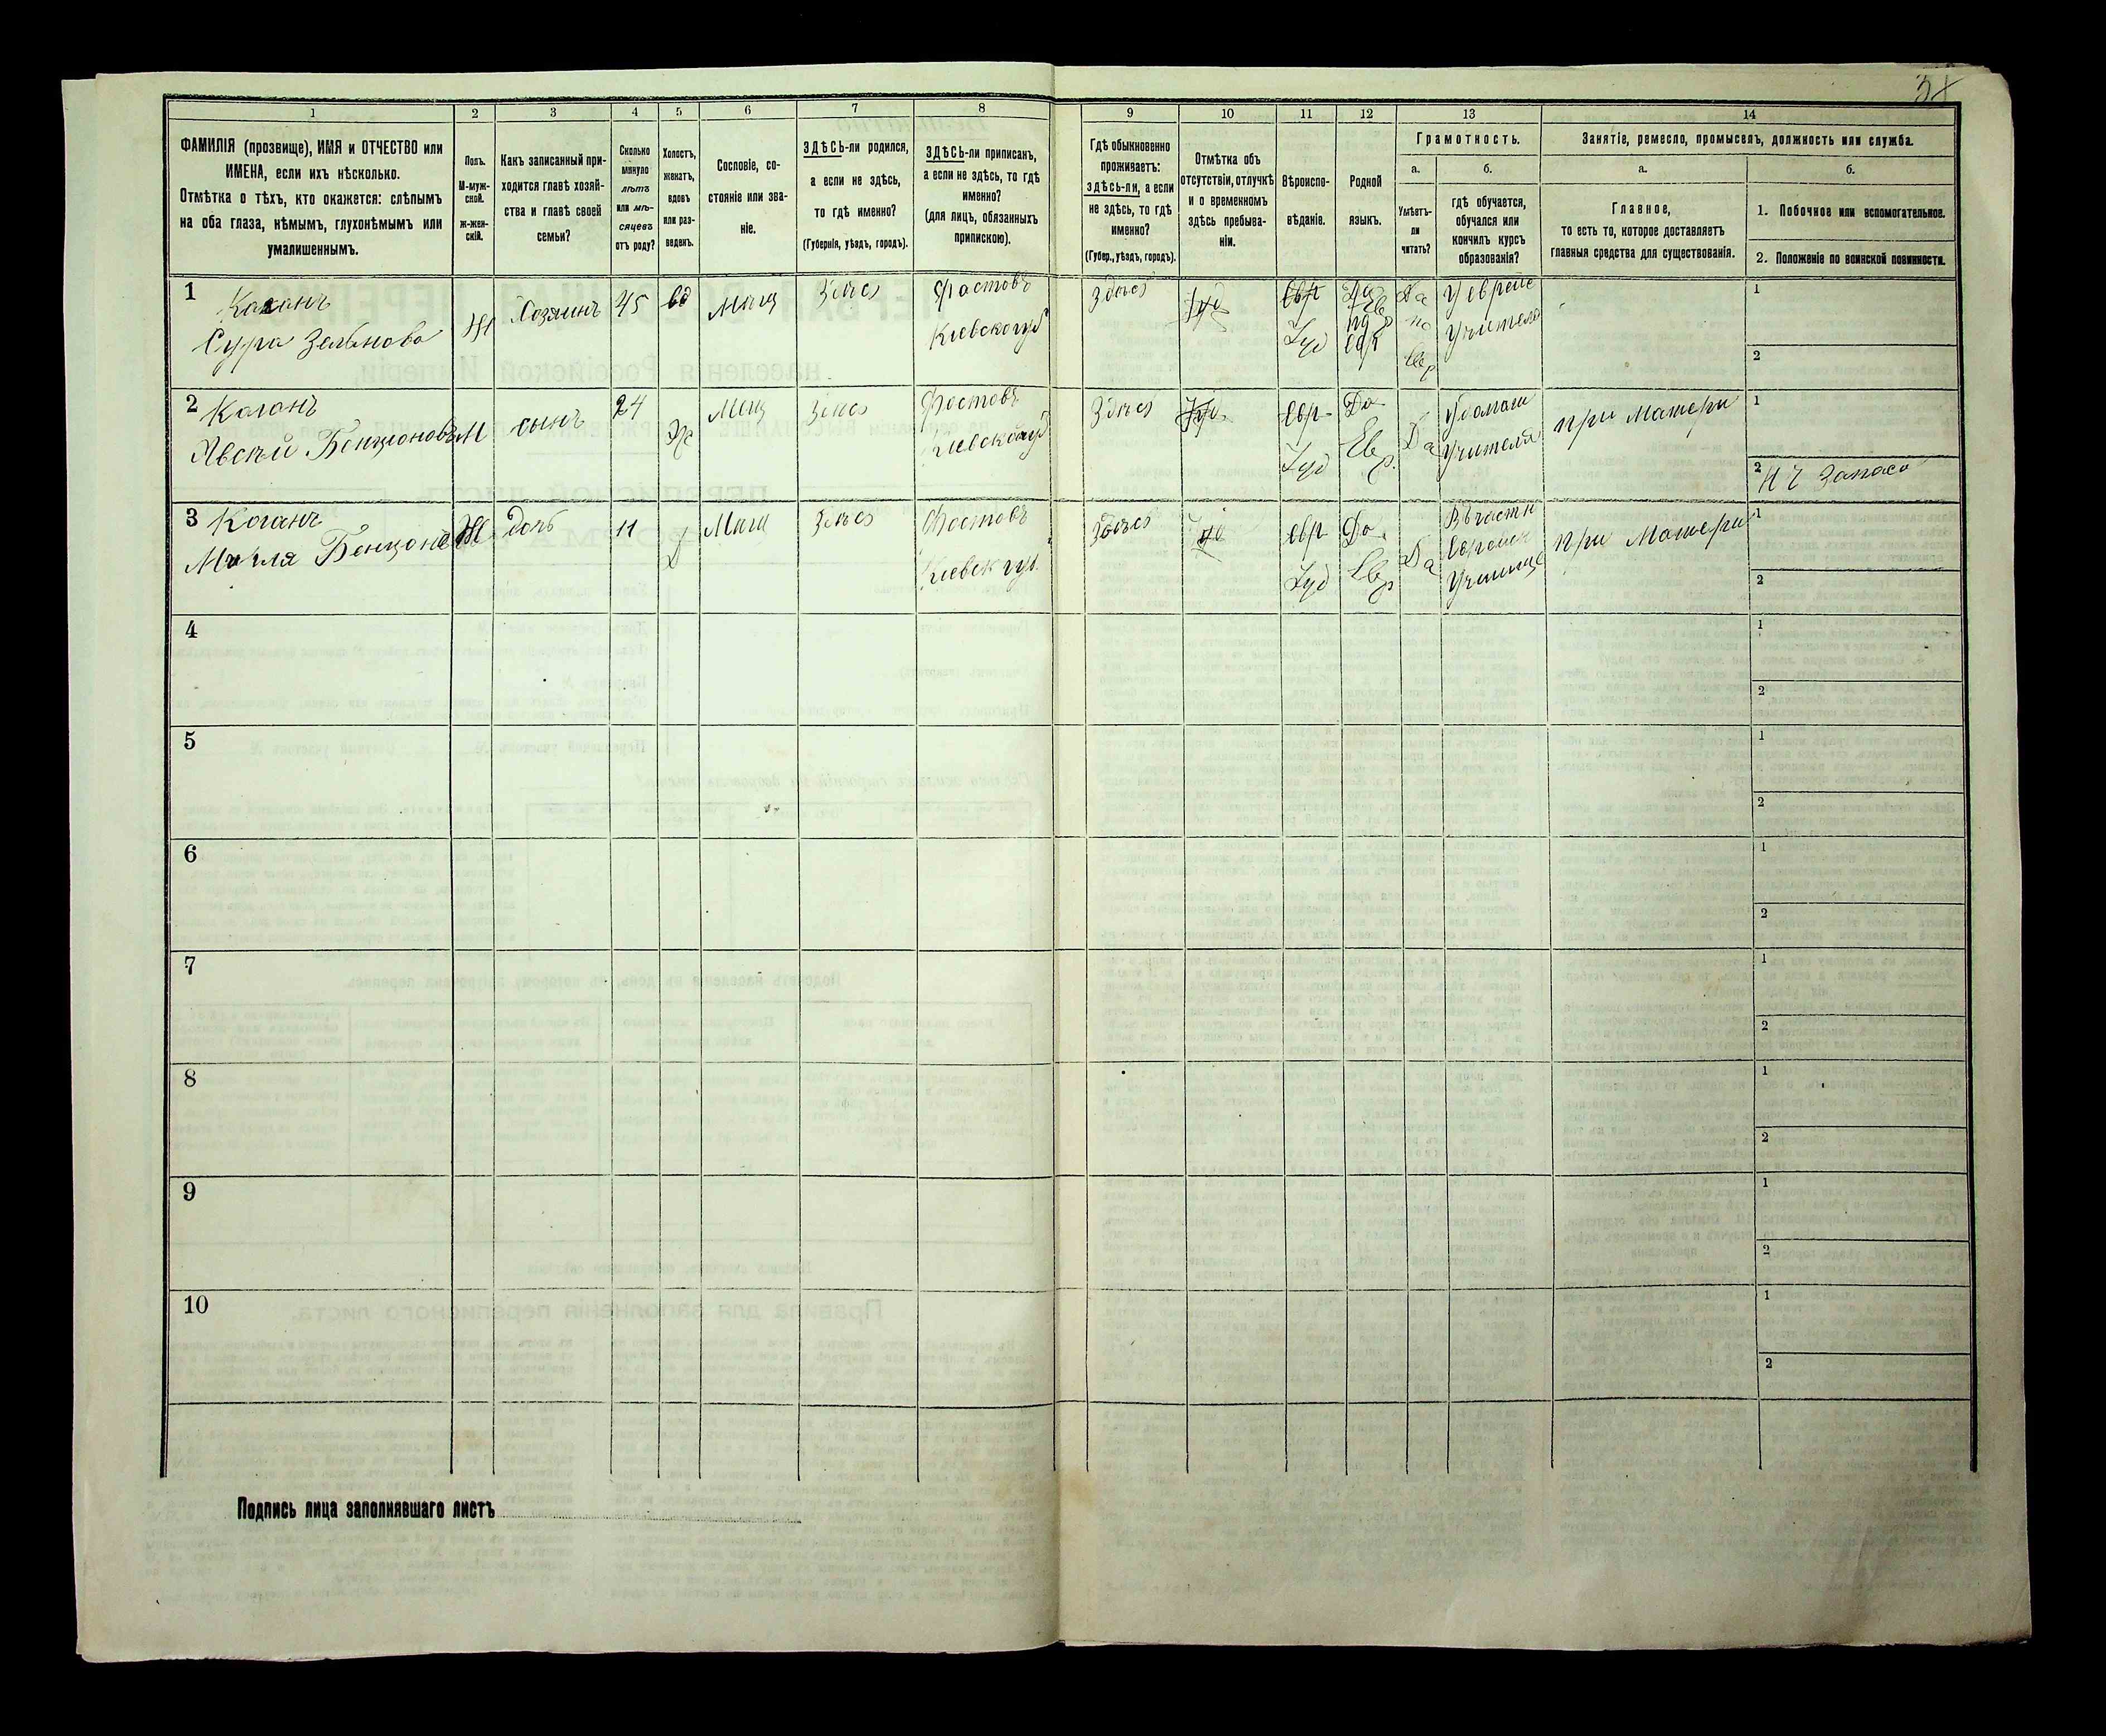 1
2
3
4
5
6
7
8
9
10
11
12
13
14
ФАМИЛІЯ (прозвище), ИМЯ и ОТЧЕСТВО или
ИМЕНА, если ихъ нѣсколько.
Отмѣтка о тѣхъ, кто окажется: слѣпымъ
на оба глаза, нѣмымъ, глухонѣмымъ или
умалишеннымъ.
Полъ.
М-муж-
ской.
Ж-жен-
скій.
Какъ записанный при-
ходится главѣ хозяй-
ства и главѣ своей
семьи?
Сколько
минуло
лѣтъ
или мѣ-
сяцевъ
отъ роду?
Холостъ,
женатъ,
вдовъ
или раз-
веденъ.
Сословіе, со-
стояніе или зва-
ніе.
ЗДѢСЬ-ли родился,
а если не здѣсь,
то гдѣ именно?
(Губернія, уѣздъ, городъ).
ЗДѢСЬ-ли приписанъ,
а если не здѣсь, то гдѣ
именно?
(для лицъ, обязанныхъ
припискою).
Гдѣ обыкновенно
проживаетъ:
здѣсь-ли, а если
не здѣсь, то гдѣ
именно?
(Губер., уѣздъ, городъ).
Отмѣтка объ
отсутствіи, отлучкѣ
и о временномъ
здѣсь пребыва-
ніи.
Вѣроиспо-
вѣданіе.
Родной
языкъ.
Грамотность.
а.
Умѣетъ-
ли
читать?
б.
гдѣ обучается,
обучался или
кончилъ курсъ
образованія?
Занятіе, ремесло, промыселъ, должность или служба.
а.
Главное,
то есть то, которое доставляетъ
главныя средства для существованія.
б.
1. Побочное или вспомогательное.
2. Положеніе по воинской повинности.
1
Каганъ
Сура Зельнова
Ж
Хозяинъ
45
вд
Мѣщ
Здѣсь
Фастовъ
Кіевскогуб
Здѣсь
Іуд
евр
Іуд
евр
Да
по
Евр
У еврейс
Учителя
1
2
2
Каганъ
Бенціоновъ
М
сынъ
24
Мѣщ
Здѣсь
Фастовъ
Кіевскойгуб
Здѣсь
Іуд
евр
Іуд
Да
Евр.
Да
Удомаш
Учителя
при Матери
1
2
Запаса
3
Каганъ
Ж
Дочь
11
Мѣщ
Здѣсь
Фастовъ
Кіевск губ.
Здѣсь
евр
Іуд
Да
Евр
Да
Въчастн
Еврейск
Училище
при Матери
1
2
4
1
2
5
1
2
6
1
2
7
1
2
8
1
2
9
1
2
10
1
2
Подпись лица заполнявшаго листъ